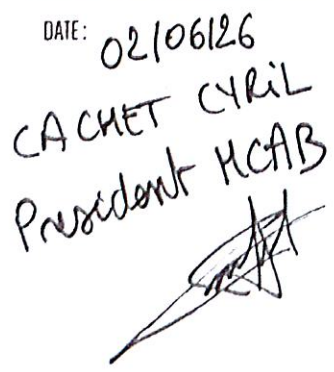 DATE: 02/06/26
CACHET CYRiL
President MCAB